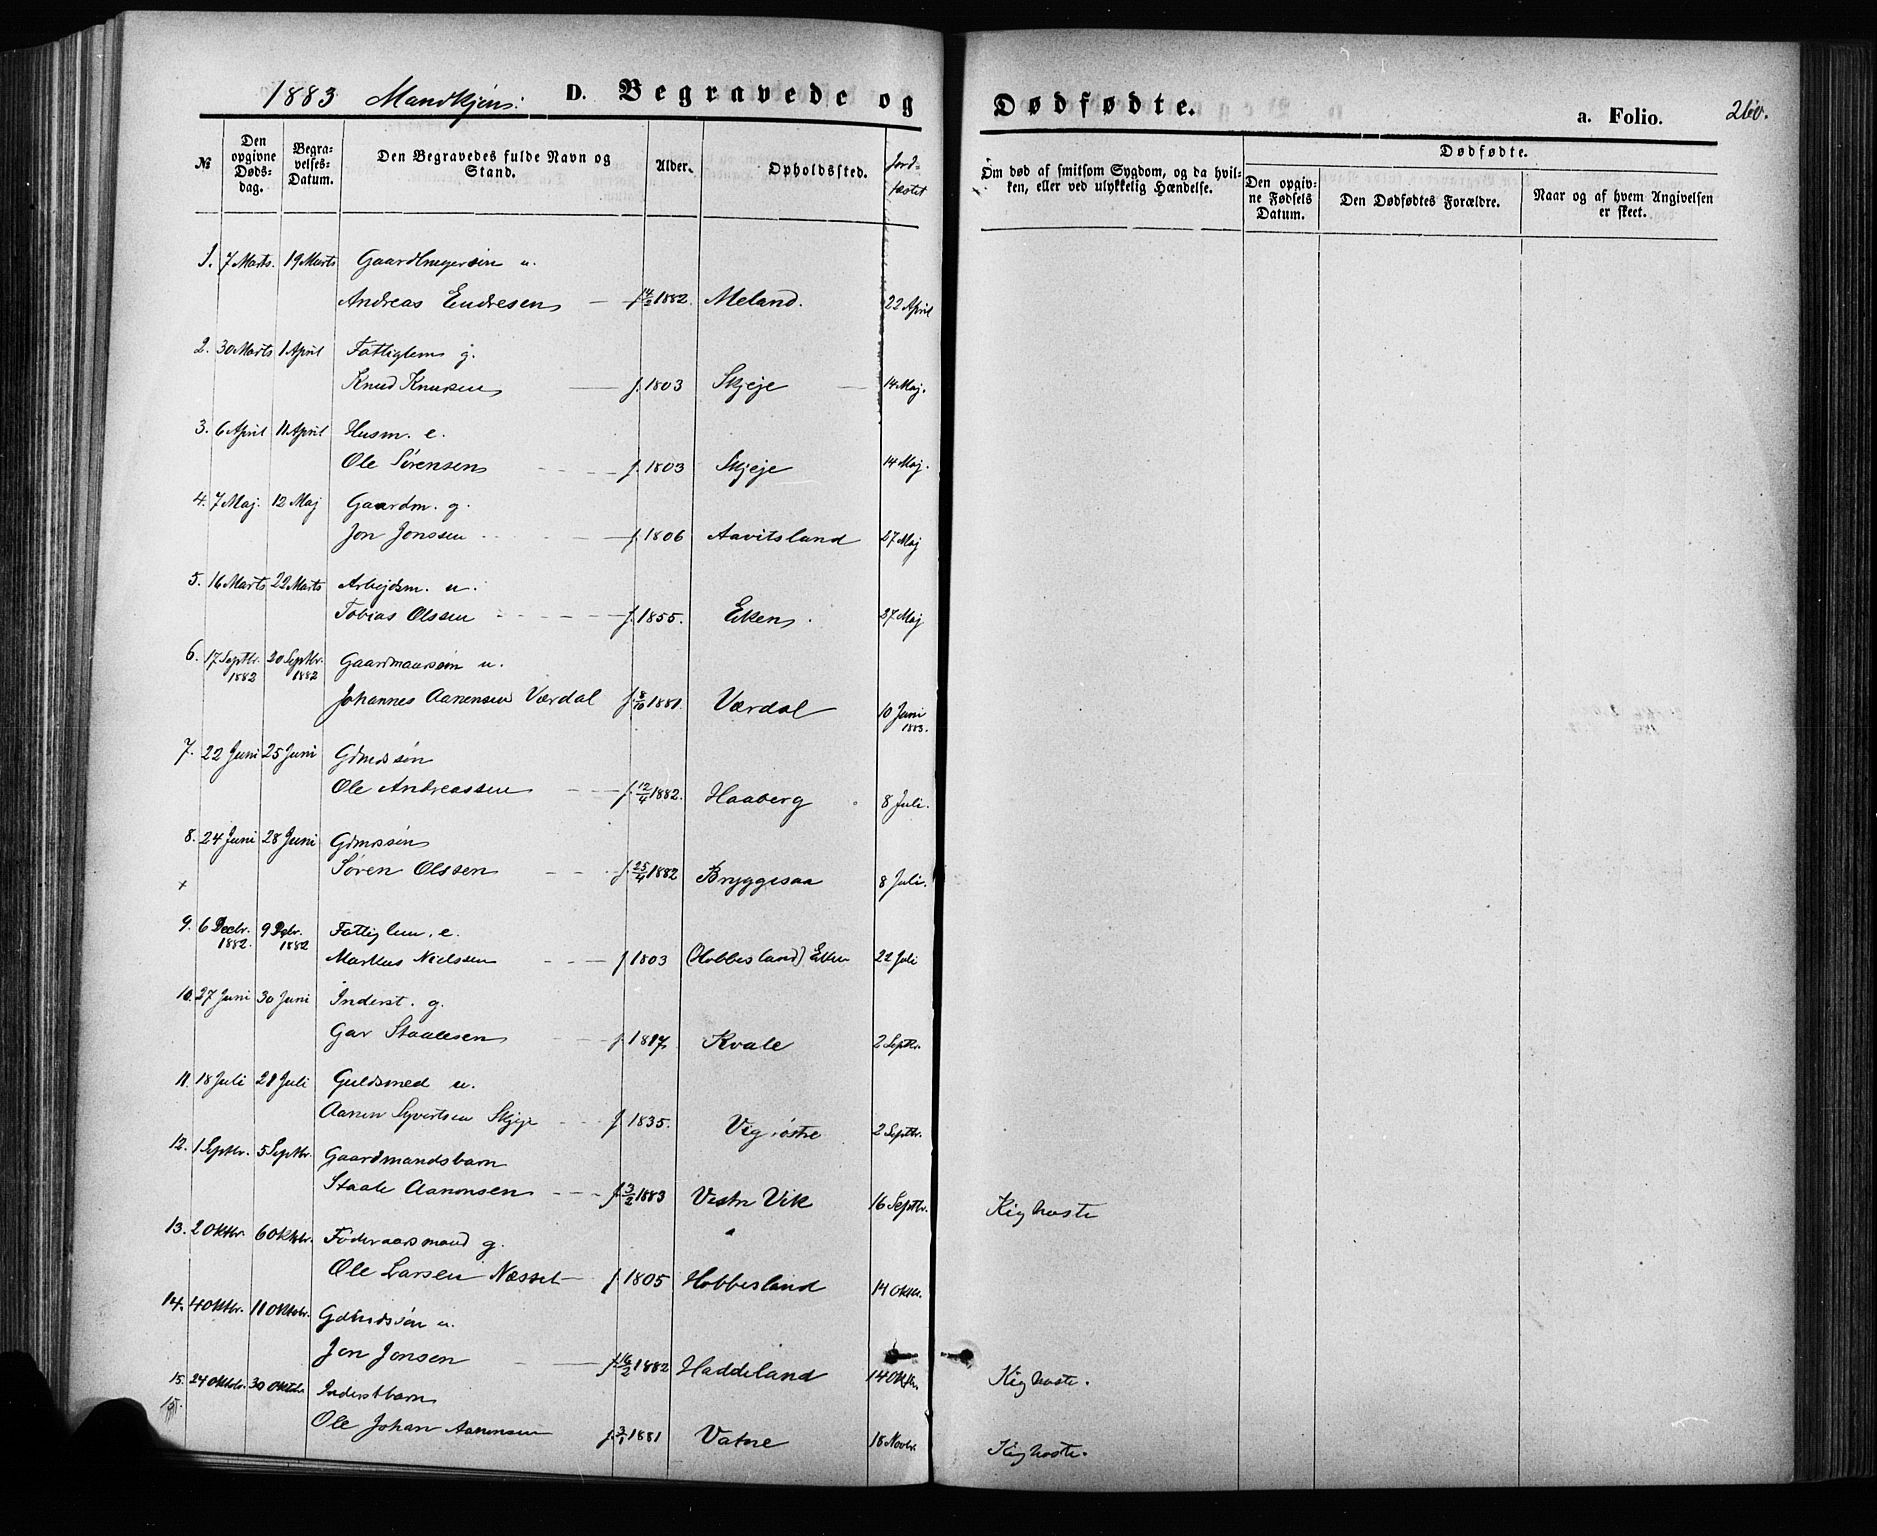 1883 Mandkjøn: D. Begravede og Dødfødte. a. Folio. 260.
№ Den opgivne Dødsdag. Begravelses-Datum. Den Begravedes fulde Navn og Stand. Alder. Opholdssted. Jordfæstet Om død af smitsom Sygdom, og da hvilken, eller ved ulykkelig Hændelse. Dødfødte.
Den opgivne Fødsels Datum. Den Dødfødtes Forældre. Naar og af hvem Angivelsen er skeet.
1. 7 Marts. 19 Marts Gaardbrugersøn u.
Andreas Endresen f. 14/2 1882. Meland. 22 April
2. 30 Marts 1 April Fattiglem g.
Knud Knudsen f. 1803 Skjeje 14 Maj.
3. 6 April 11 April Husm. e.
Ole Sørensen f. 1803 Skjeje 14 Maj.
4. 7 Maj. 12 Maj Gaardm. g.
Jon Jonssen f. 1806 Aavitsland 27 Maj
5. 16 Marts 22 Marts Arbejdsm. u.
Tobias Olssen f. 1855. Eiken. 27 Maj
6. 17 Septbr. 1882 20 Septbr. 1882 Gaardmandsøn u.
Johannes Aanensen Værdal f. 8/10 1881. Værdal 10 Juni 1883.
7. 22 Juni 25 Juni Gdmdssøn
Ole Andreassen f. 12/4 1882. Haaberg 8 Juli.
8. 24 Juni 28 Juni Gdmdssøn
Søren Olssen f. 25/4 1882 Bryggesaa 8 Juli.
+
9. 6 Decbr. 1882. 9 Decbr. 1882 Fattiglem. e.
Markus Nielssen f 1803 (Hobbesland) Eiken 22 Juli
10. 27 Juni 30 Juni Inderst. g.
Gar Staalesen f. 1817 Kvale 2 Septbr.
11. 18 Juli 21 Juli Guldsmed u.
Aanen Syvertsen Skjeje f 1835. Veg østre 2 Septbr.
12. 1 Septbr. 5 Septbr. Gaardmandsbarn
Staale Aanonsen f. 3/2 1883 Vestre Vik 16 Septbr. Kighoste
13. 2 Oktbr. 6 Oktbr. Føderaadsmand g.
Ole Larsen Næsset f. 1805 Hobbesland 14 Oktbr.
14. 4 Oktbr. 11 Oktobr. Gdmdssøn u.
Jon Jonsen f. 16/2 1882 Haddeland 14 Oktbr. Kighoste.
15. 24 Oktobr. 30 Oktobr. Inderstbarn
15. Ole Johan Aanensen f. 3/1 1881 Vatne 18 Novbr. Kighoste.